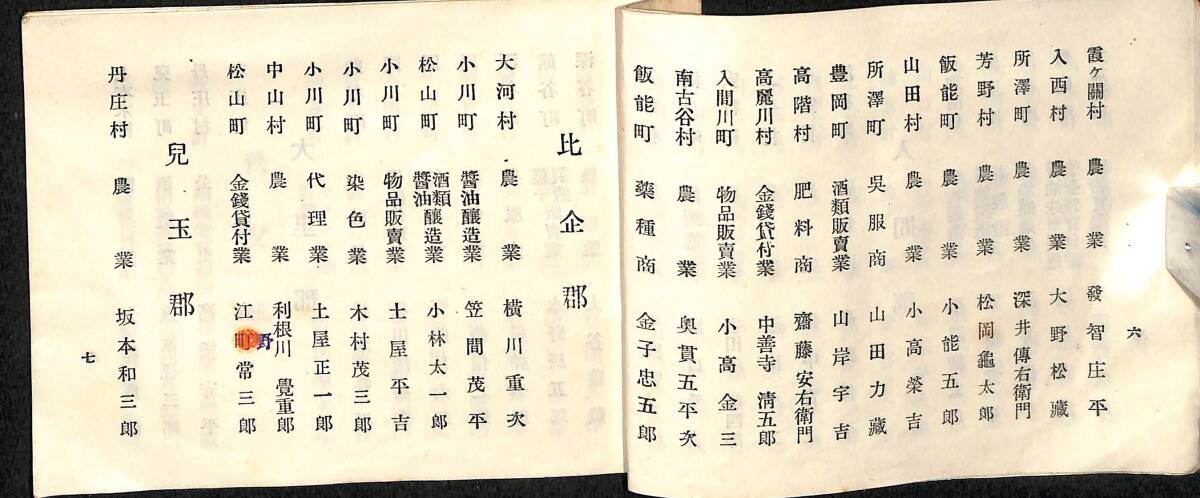 六
霞ヶ關村 農業 發智庄平
入西村 農業 大野松藏
所澤町 農業 深井傳右衛門
芳野村 農業 松岡龜太郎
飯能町 農業 小能五郎
山田村 農業 小高榮吉
所澤町 吳服商 山田力藏
豊岡町 酒類販賣業 山岸宇吉
高階村 肥料商 齋藤安右衛門
高麗川村 金錢貸付業 中善寺清五郎
入間川町 物品販賣業 小高金三
南古谷村 農業 奧貫五平次
飯能町 藥種商 金子忠五郎
比企郡
大河村 農業 橫川重次
小川町 醬油釀造業 笠間茂平
松山町 酒類醬油釀造業 小林太一郎
小川町 物品販賣業 土屋平吉
小川町 染色業 木村茂三郎
小川町 代理業 土屋正一郎
中山村 農業 利根川覺重郎
松山町 金錢貸付業 江町常三郎
野
兒玉郡
丹庄村 農業 坂本和三郎
七